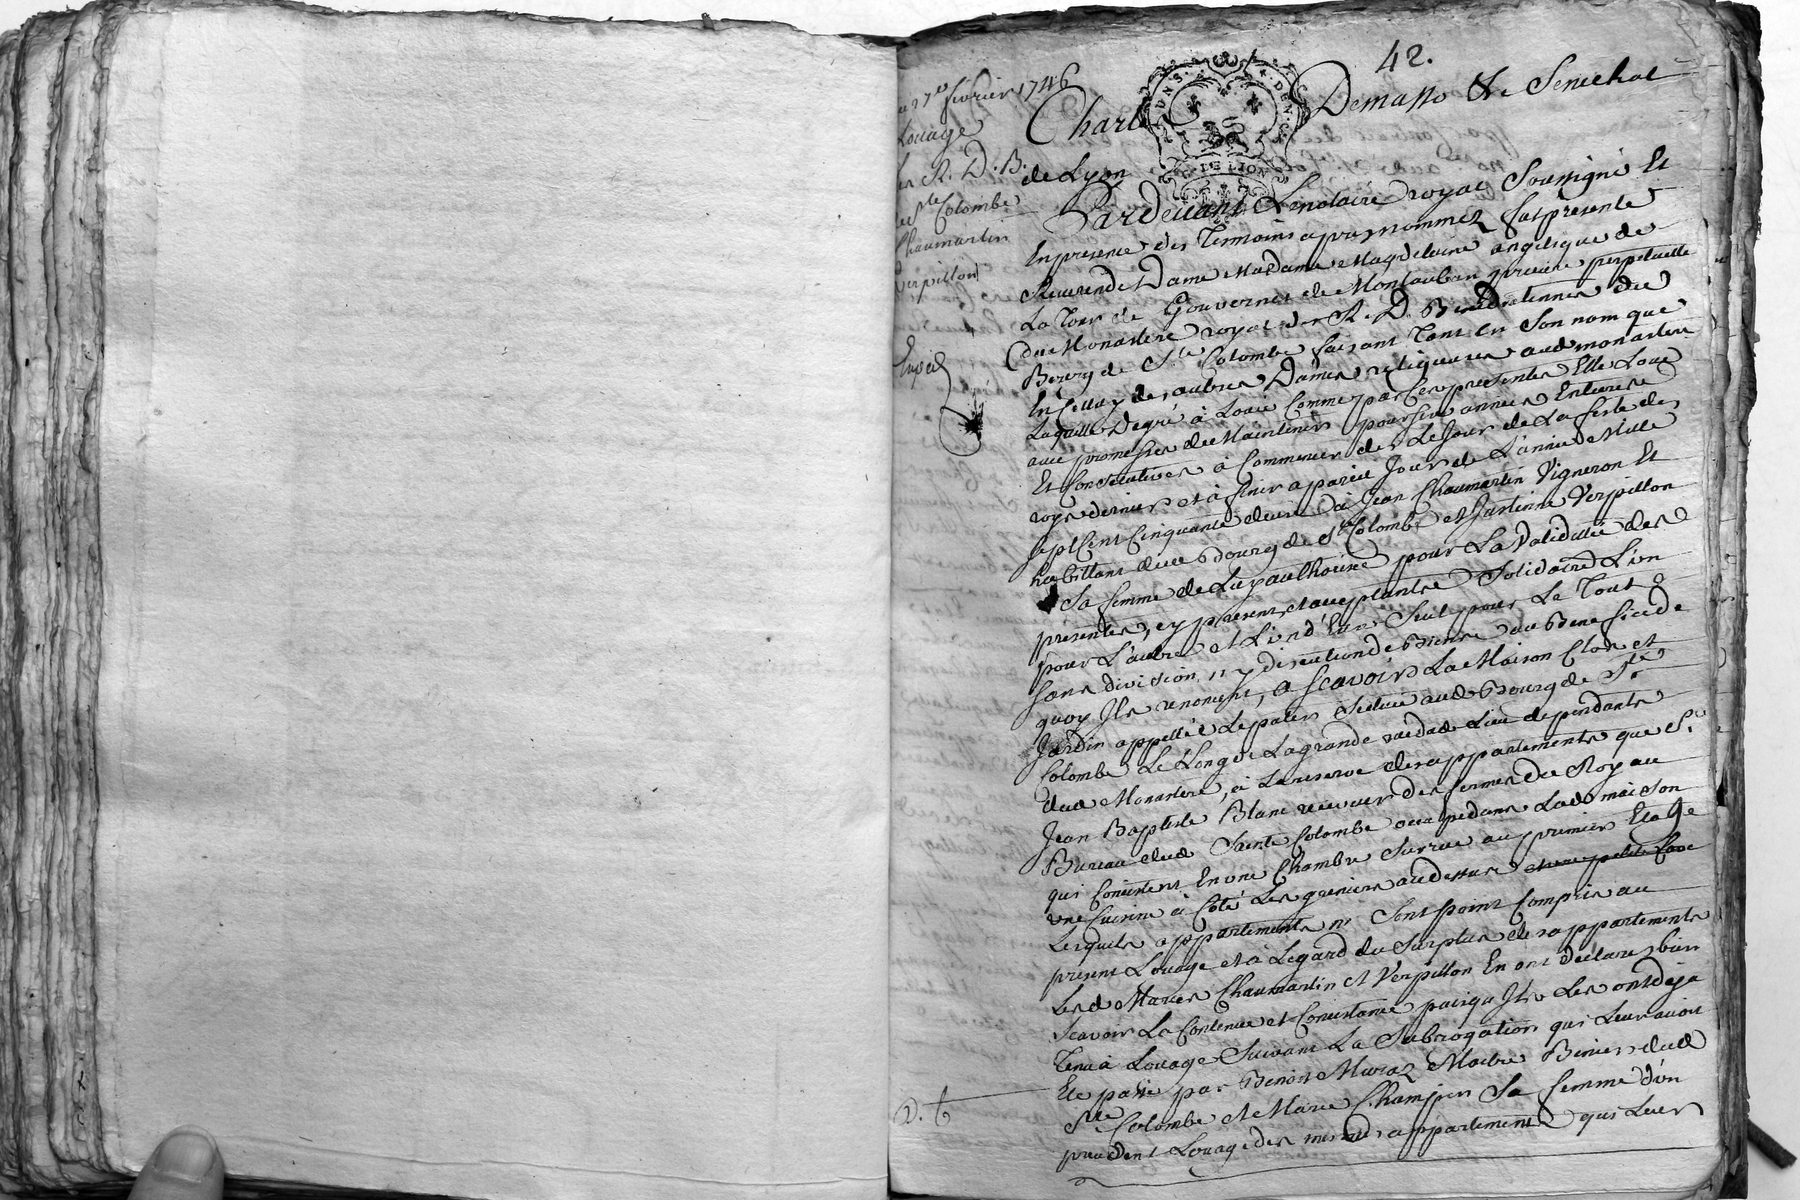 42.
27e fevrier 1746
Louage
les R. D. B.
de Ste Colombe
Chaumartin
Verpillon
Exped
Charle Demasso &c Senechal
UN S. DEN
G. DE LION
de Lyon
Pardevant Le notaire royal Soussigné Et
En presence des Temoins apres nommez fut presente
Reverende Dame Madame Magdeleine angelique de
La Tour de Gouvernet de Montauban prieure perpetuelle
du Monastere royal des R. D. Benedictennes du
Bourg de Ste Colombe faisant Tant En Son nom que
En Celluy des autres Dames religieuses aud monastere
Laquelle Degré à Loüé Comme par Ces presentes Elle Loue
avec promesses de Maintenir pour six années Entieres
Et Consecutives à Commencer dès Le Jour de La feste des
roys dernier et à finir a pareil Jour de L'année Mille
sept Cent Cinquante deux à Jean Chaumartin Vigneron Et
habittant dud Bourg de Ste Colombe et Justinne Verpillon
Sa femme de Luy authorisée pour La Validitté des
presentes, cy presents et acceptants Solidaire L'un
pour L'autre et L'un d'Eux Seul pour Le Tout
sans division ny discution de Biens au Benefice de
quoy Ils renoncent, a scavoir La Maison Clos et
Jardin appellée Lepaler scituée aud Bourg de Ste
Colombe Le Long de La grande rue dud Lieu dependants
dud Monastere, à La reserve des appartements que Sr
Jean Baptiste Blanc receveur des fermes du Roy au
Bureau dud Sainte Colombe occupe dans Lad maison
qui Consistent En une Chambre Sur rue au premier Etage
une Cuisine à Coté Les greniers audessus et une petite Cave
Lesquels appartements ne Sont point Compris au
present Louage et à L'egard du Surplus des appartements
Lesd Mariés Chaumartin et Verpillon En ont declaré bien
scavoir La Contenue et Consistance puisqu'Ils Les ont deja
Tenu à Louage Suivant La Subrogation qui Leur avoit
Eté passé par Benoit Muraz Maitre Binier dud
Ste Colombe et Marie Champin Sa femme d'un
precedent Louage des mesmes appartements qui Leur
D. t